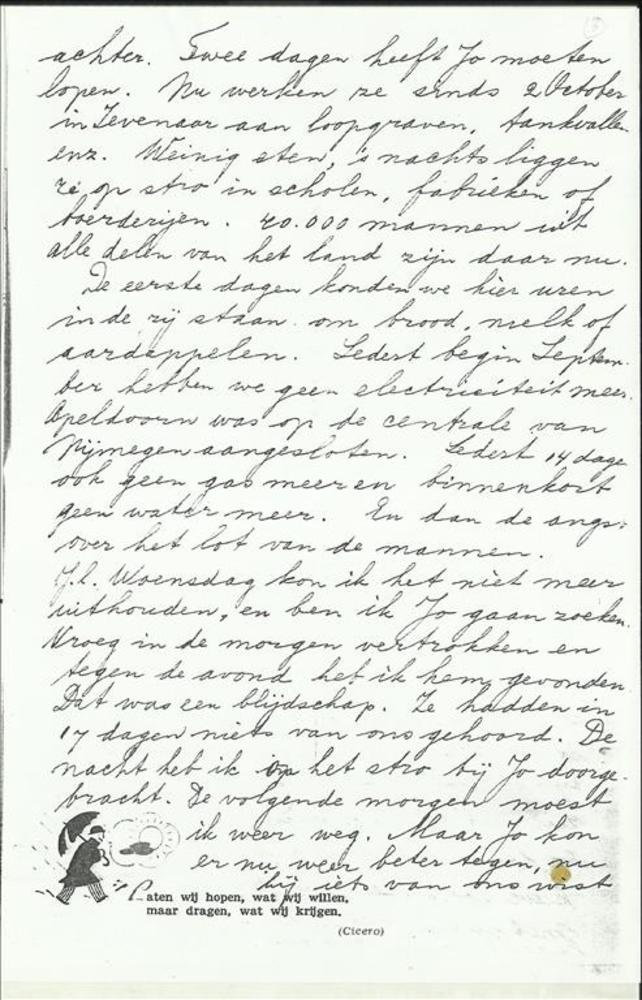 achter. Twee dagen heeft Jo moeten
lopen. Nu werken ze sinds 2 October
in Zevenaar aan loopgraven, tankvalle-
enz. Weinig eten, 's nachts liggen
ze op stro in scholen, fabrieken of
boerderijen. 40.000 mannen uit
alle delen van het land zijn daar nu.
De eerste dagen konden we hier uren
in de rij staan om brood, melk of
aardappelen. Sedert begin Septem-
ber hebben we geen electriciteit meer.
Apeldoorn was op de centrale van
Nijmegen aangesloten. Sedert 14 dage
ook geen gas meer en binnenkort
geen water meer. En dan de angs
over het lot van de mannen.
J.l. Woensdag kon ik het niet meer
uithouden, en ben ik Jo gaan zoeken.
Vroeg in de morgen vertrokken en
tegen de avond heb ik hem gevonden.
Dat was een blijdschap. Ze hadden in
17 dagen niets van ons gehoord. De
nacht heb ik op het stro bij Jo doorge-
bracht. De volgende morgen moest
ik weer weg. Maar Jo kon
er nu weer beter tegen, nu
hij iets van ons wist
Laten wij hopen, wat wij willen,
maar dragen, wat wij krijgen.
(Cicero)